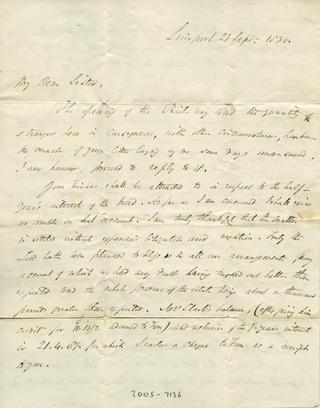 Liverpool 21 Septr. 1830.
My Dear Sister,
The opening of the Railway and the quantity of
strangers here in consequence, with other circumstances, has been
the occasion of your letter laying by me some days unanswered.
I now however proceed to reply to it.
Your wishes shall be attended to in respect to the half-
years interest of the bond. As far as I am concerned there is
no trouble on that account. I am truly thankful that the matter
is settled without expensive litigation and vexation. Truly the
Lord hath been pleased to bless us in all our arrangements, the
account of which we had any doubt having turned out better than
expected and the whole proceeds of the estate being about a thousand
pounds greater than expected. Mrs Clark's balance, (after giving him
credit for and exclusive of the years interest
is 21.4.8½ for which I enclose a cheque as a receipt
to you.
2005-7136